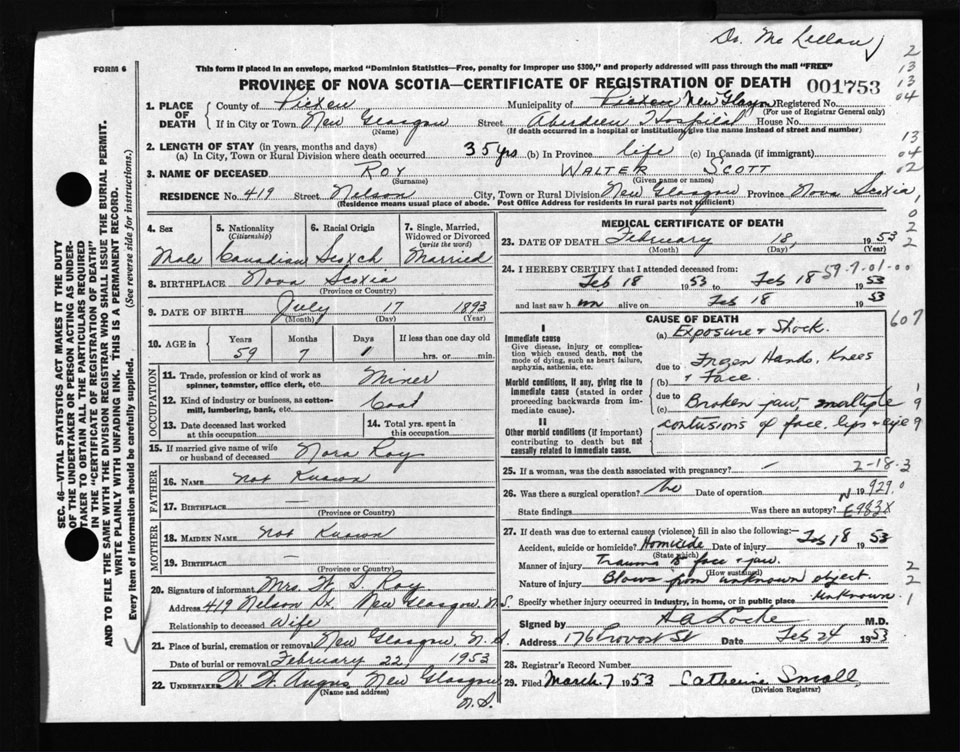 Dr. Mc Lellan
FORM 6
This form if placed in an envelope, marked "Dominion Statistics—Free, penalty for improper use $300," and properly addressed will pass through the mail "FREE"
PROVINCE OF NOVA SCOTIA—CERTIFICATE OF REGISTRATION OF DEATH 001753
1. PLACE OF DEATH
County of Pictou Municipality of Pictou New Glasgow Registered No.
(For use of Registrar General only)
If in City or Town New Glasgow Street Aberdeen Hospital House No.
(Name) (If death occurred in a hospital or institution, give the name instead of street and number)
2. LENGTH OF STAY (in years, months and days)
(a) In City, Town or Rural Division where death occurred 35 yrs (b) In Province life (c) In Canada (if immigrant)
3. NAME OF DECEASED ROY WALTER SCOTT
(Surname) (Given name or names)
RESIDENCE No. 419 Street Nelson City, Town or Rural Division New Glasgow Province Nova Scotia
(Residence means usual place of abode. Post Office Address for residents in rural parts not sufficient)
4. Sex Male
5. Nationality (Citizenship) Canadian
6. Racial Origin Scotch
7. Single, Married, Widowed or Divorced (write the word) Married
8. BIRTHPLACE Nova Scotia
(Province or Country)
9. DATE OF BIRTH July 17 1893
(Month) (Day) (Year)
10. AGE in Years Months Days If less than one day old
59 7 1 hrs. or min.
OCCUPATION
11. Trade, profession or kind of work as spinner, teamster, office clerk, etc. Miner
12. Kind of industry or business, as cotton-mill, lumbering, bank, etc. Coal
13. Date deceased last worked at this occupation
14. Total yrs. spent in this occupation
15. If married give name of wife or husband of deceased Nora Roy
FATHER
16. NAME Not Known
17. BIRTHPLACE —
(Province or Country)
MOTHER
18. MAIDEN NAME Not Known
19. BIRTHPLACE —
(Province or Country)
20. Signature of informant Mrs. W. S. Roy
Address 419 Nelson St. New Glasgow, N.S.
Relationship to deceased Wife
21. Place of burial, cremation or removal New Glasgow, N.S.
Date of burial or removal February 22, 1953
22. UNDERTAKER W. W. Angus New Glasgow, N.S.
(Name and address)
MEDICAL CERTIFICATE OF DEATH
23. DATE OF DEATH February 18, 1953
(Month) (Day) (Year)
24. I HEREBY CERTIFY that I attended deceased from:
Feb 18 1953 to Feb 18 1953
59-7-01-00
and last saw him alive on Feb 18 1953
CAUSE OF DEATH
I
Immediate cause
Give disease, injury or complication which caused death, not the mode of dying, such as heart failure, asphyxia, asthenia, etc.
(a) Exposure + Shock.
due to Frozen Hands, Knees
Morbid conditions, if any, giving rise to immediate cause (stated in order proceeding backwards from immediate cause).
(b) + Face
due to Broken jaw, multiple
(c) contusions of face, lips + eye
II
Other morbid conditions (if important) contributing to death but not causally related to immediate cause.
25. If a woman, was the death associated with pregnancy? —
2-18-3
26. Was there a surgical operation? No Date of operation 19
N 929.0
State findings Was there an autopsy?
E983X
27. If death was due to external causes (violence) fill in also the following:—
Accident, suicide or homicide? Homicide Date of injury Feb 18 1953
(State which)
Manner of injury Trauma to face + jaw.
(How sustained)
Nature of injury Blows from unknown object.
Specify whether injury occurred in industry, in home, or in public place Unknown
Signed by A A Locke M.D.
Address 176 Provost St Date Feb 24 1953
28. Registrar's Record Number
29. Filed March 7 1953 Catherine Small
(Division Registrar)
SEC. 46—VITAL STATISTICS ACT MAKES IT THE DUTY
OF THE UNDERTAKER OR PERSON ACTING AS UNDER-
TAKER TO OBTAIN ALL THE PARTICULARS REQUIRED
IN THE "CERTIFICATE OF REGISTRATION OF DEATH"
AND TO FILE THE SAME WITH THE DIVISION REGISTRAR WHO SHALL ISSUE THE BURIAL PERMIT.
WRITE PLAINLY WITH UNFADING INK. THIS IS A PERMANENT RECORD.
Every item of information should be carefully supplied. (See reverse side for instructions.)
2
13
13
04
13
04
02
1
0
2
2
607
1
9
9
2
2
1